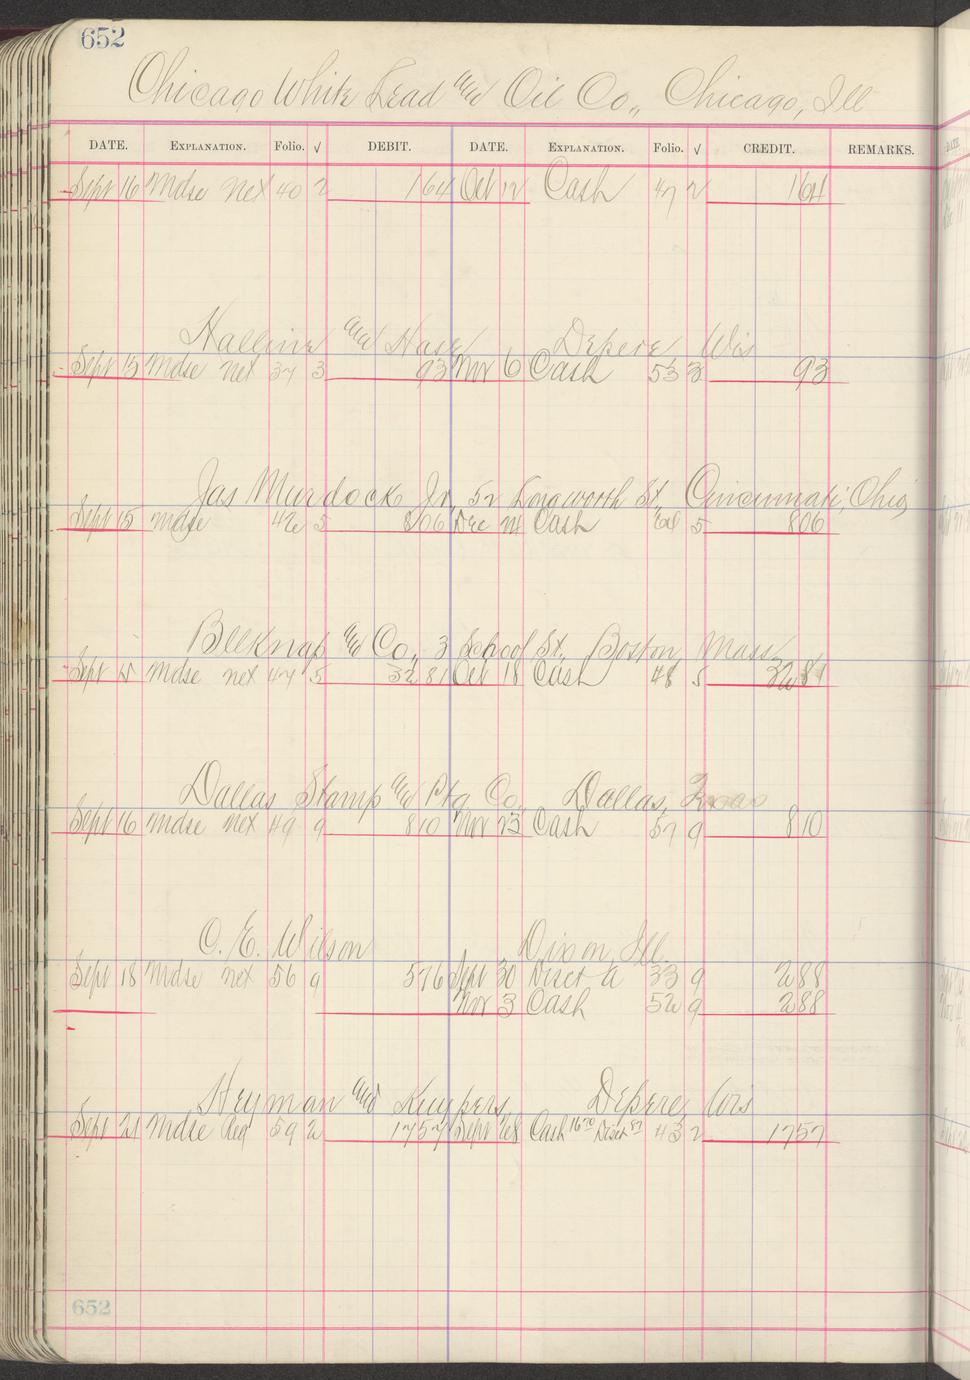 652
Chicago White Lead and Oil Co., Chicago, Ill
DATE. EXPLANATION. Folio. √ DEBIT. DATE. EXPLANATION. Folio. √ CREDIT. REMARKS.
Sept 16 Mdse net 40 2 164 Oct 12 Cash 47 2 164
and Depere Wis
Sept 15 Mdse net 37 3 93 Nov 6 Cash 53 3 93
Jas Murdock Jr, 52 Longworth St, Cincinnati, Ohio
Sept 15 mdse 42 5 806 Dec Cash 5 806
Belknap and Co., 3 School St, Boston Mass
Sept 15 Mdse net 47 5 3281 Oct 18 Cash 48 5 3281
Dallas Stamp and Ptg Co., Dallas, Texas
Sept 16 Mdse net 49 9 810 Nov 23 Cash 57 9 810
O. E. Wilson Dixon, Ill.
Sept 18 Mdse net 56 9 576 Sept 30 Disct a 33 9 288
Nov 3 Cash 52 9 288
Heyman and Kuypers Depere, Wis
Sept 21 Mdse Reg 59 2 1757 Sept 28 Cash 1670 Disct 87 43 2 1757
652